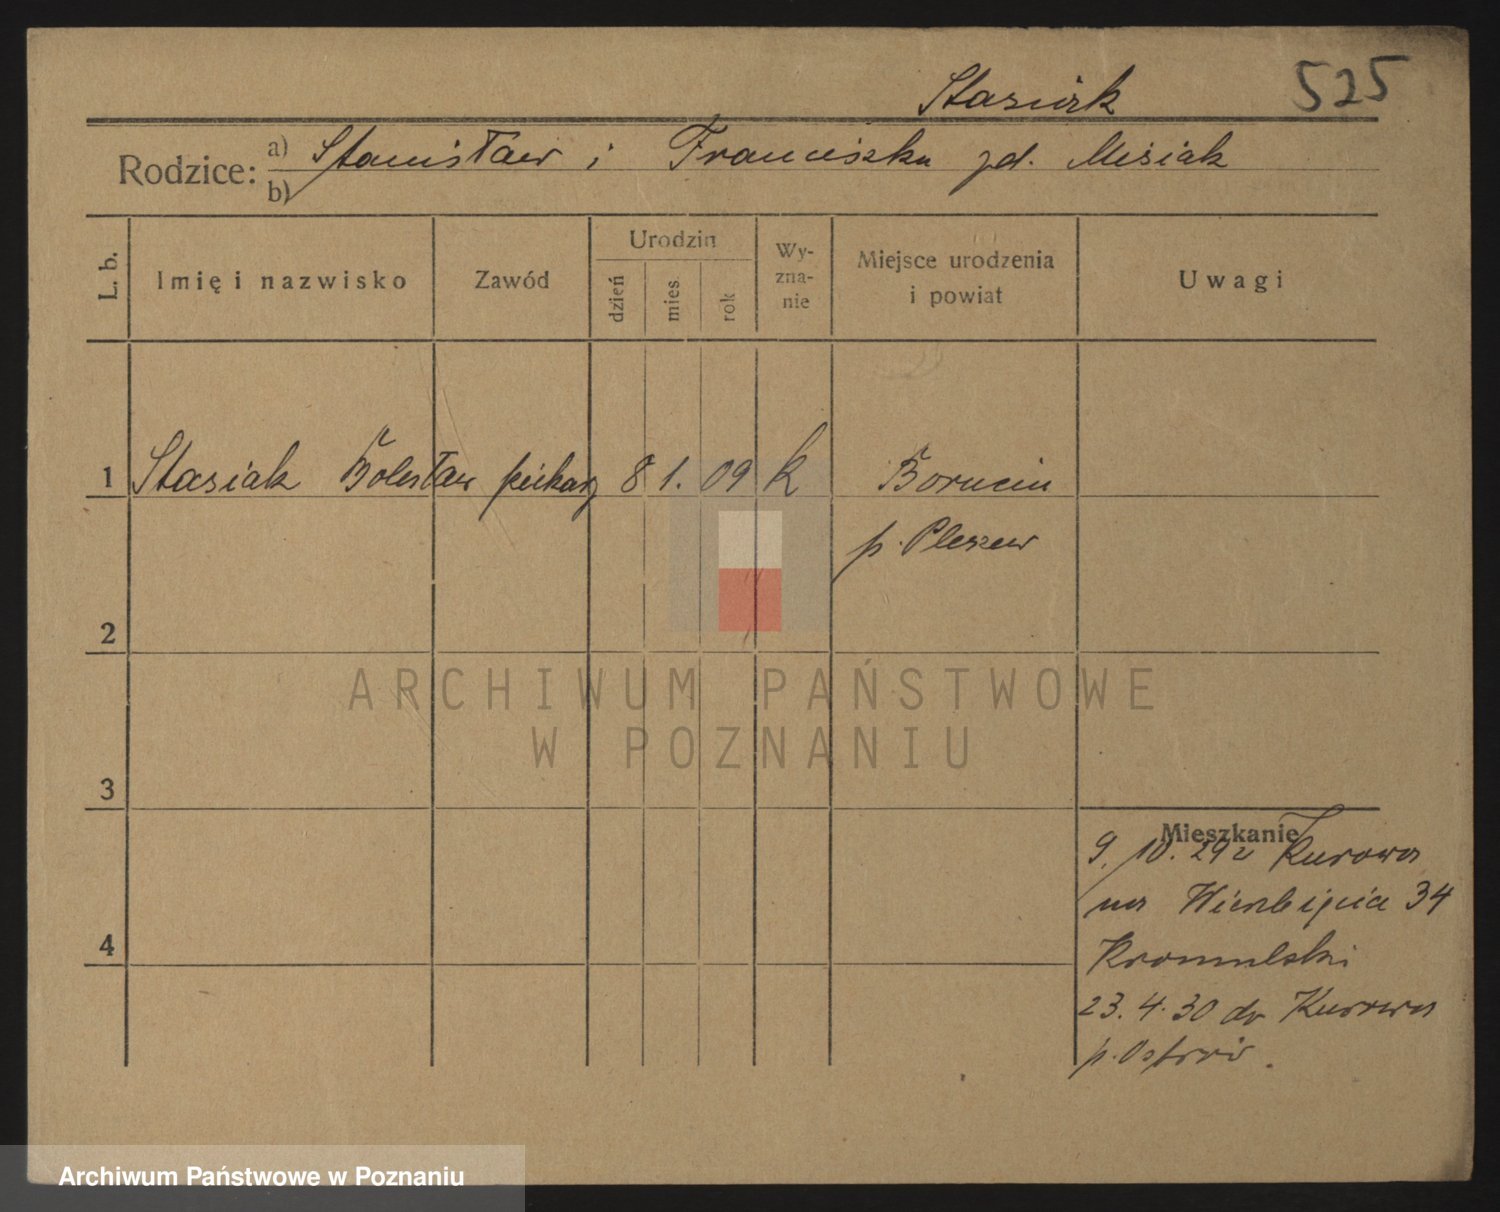 Stasiak 525
Rodzice: a) Stanisław i Franciszka zd. Misiak
b)
L. b. Imię i nazwisko Zawód Urodzin dzień mies rok Wy-zna-nie Miejsce urodzenia i powiat Uwagi
1 Stasiak Bolesław piekarz 8 1. 09 k Borucin
p. Pleszew
2
ARCHIWUM PAŃSTWOWE
W POZNANIU
3
Mieszkanie
9. 10. 29 z Kurowa
na Wierzbięcice 34
23. 4. 30 do Kurowa
4
p. Ostrów.
Archiwum Państwowe w Poznaniu